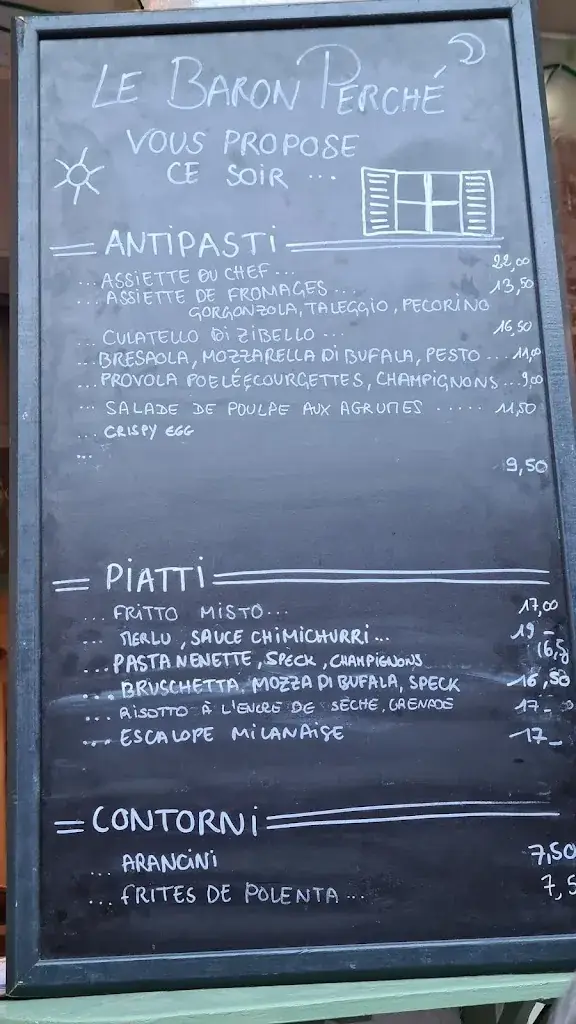 LE BARON PERCHÉ
VOUS PROPOSE
CE SOIR ...
ANTIPASTI
... ASSIETTE DU CHEF... 22,00
... ASSIETTE DE FROMAGES ... 13,50
GORGONZOLA, TALEGGIO, PECORINO
... CULATELLO Di ZIBELLO ... 16,50
... BRESAOLA, MOZZARELLA Di BUFALA, PESTO ... 11,00
... PROVOLA POELÉE, COURGETTES, CHAMPIGNONS... 9,00
... SALADE DE POULPE AUX AGRUMES ..... 11,50
... CRISPY EGG
... 9,50
PIATTI
... FRITTO MISTO... 17,00
... MERLU, SAUCE CHIMICHURRI ... 19_
... PASTA NENETTE, SPECK, CHAMPIGNONS 16,5
... BRUSCHETTA, MOZZA DI BUFALA, SPECK 16,50
... RISOTTO À L'ENCRE DE SECHE, GRENADE 17_
... ESCALOPE MILANAISE 17_
CONTORNI
... ARANCINI 7,50
... FRITES DE POLENTA ... 7,5